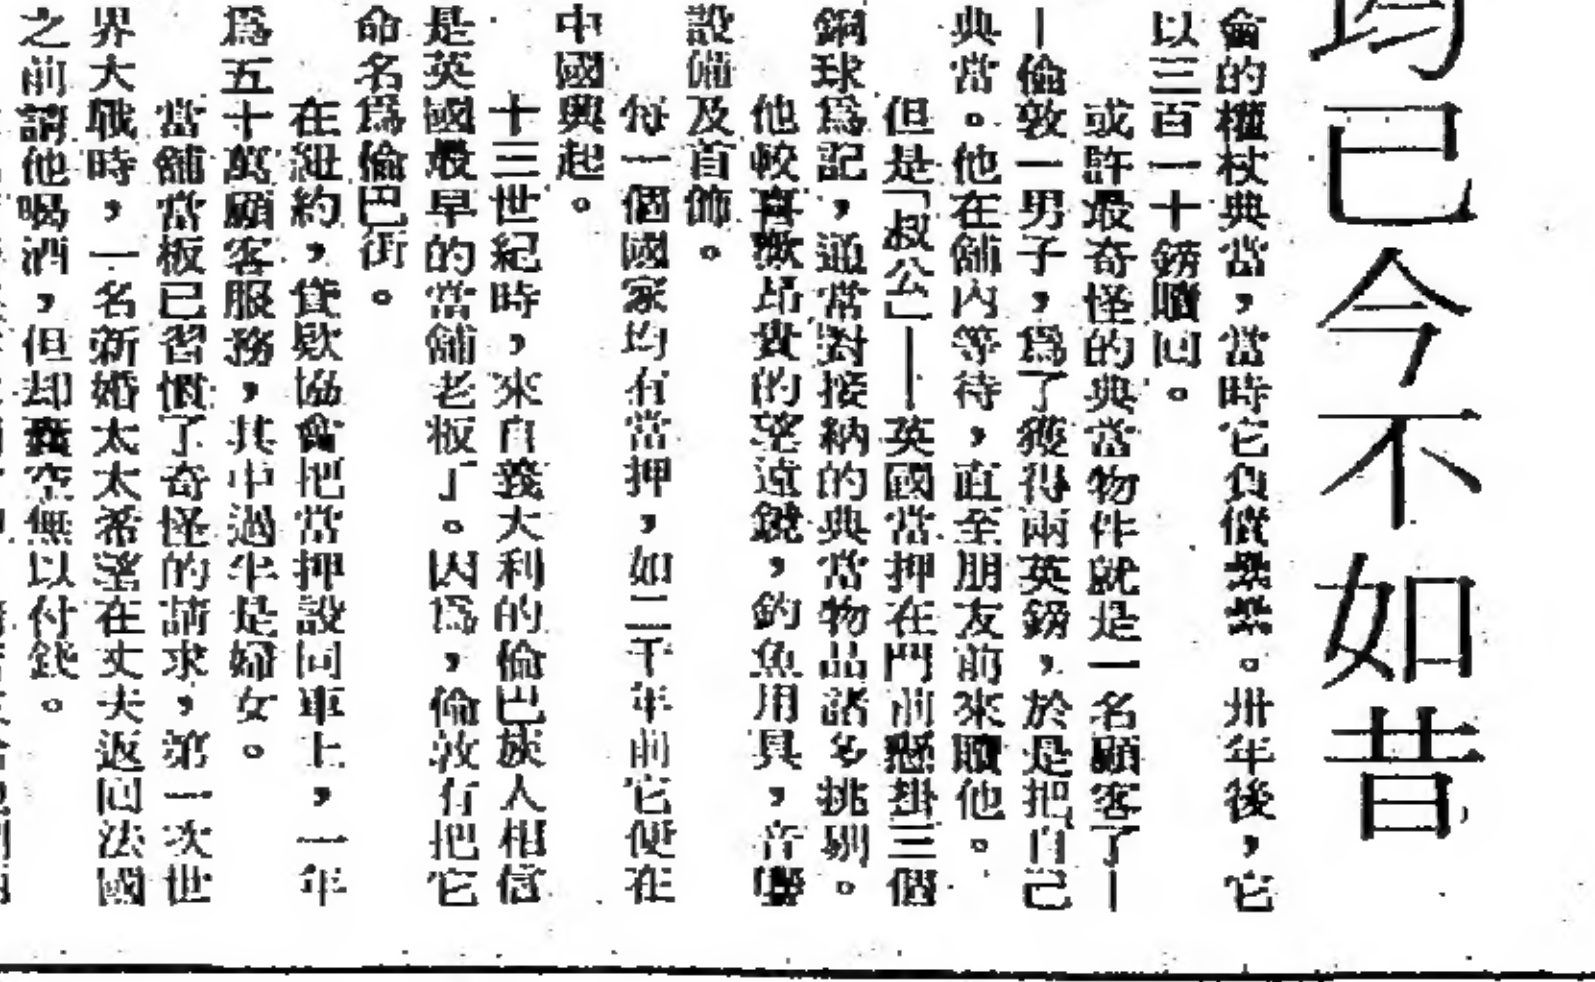 均已今不如昔
會的權杖典當，當時它負債纍纍。卅年後，它
以三百一十鎊贖回。
或許最奇怪的典當物件就是一名顧客了—
—倫敦一男子，為了獲得兩英鎊，於是把自己
典當。他在舖內等待，直至朋友前來贖他。
但是「叔公」——英國當押在門前懸掛三個
銅球為記，通常對接納的典當物品諸多挑剔。
他較喜歡昂貴的望遠鏡，釣魚用具，音響
設備及首飾。
每一個國家均有當押，如二千年前它便在
中國興起。
十三世紀時，來自義大利的倫巴族人相信
是英國最早的當舖老板了。因為，倫敦有把它
命名為倫巴街。
在紐約，貸款協會把當押設回車上，一年
為五十萬顧客服務，其中過半是婦女。
當舖當板已習慣了奇怪的請求，第一次世
界大戰時，一名新婚太太希望在丈夫返回法國
之前請他喝酒，但却囊空無以付錢。